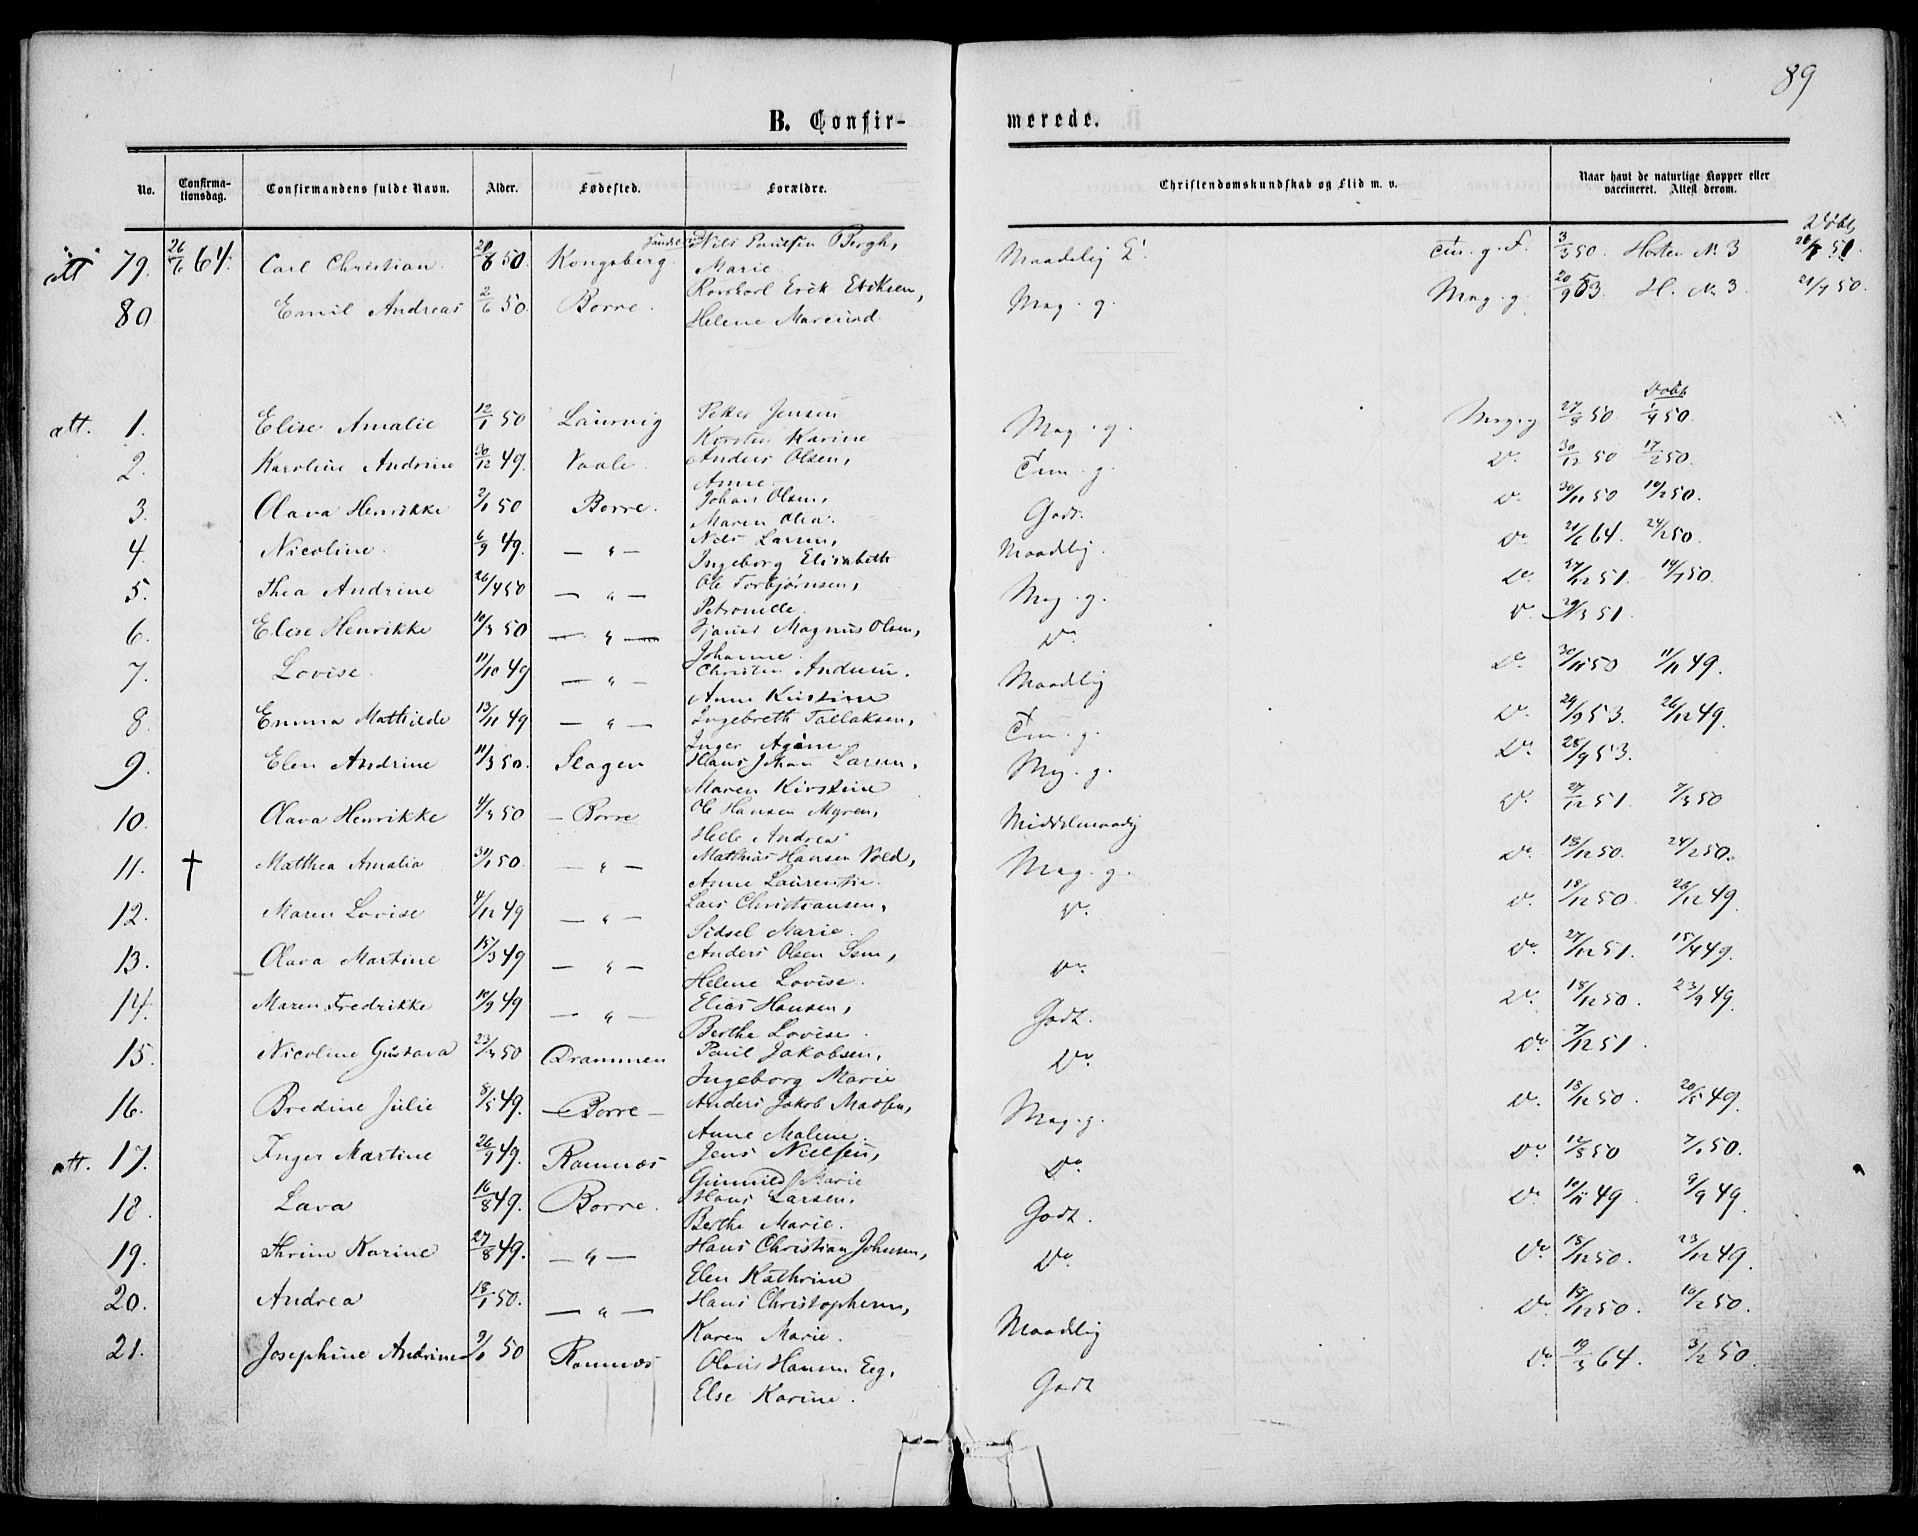 89
B. Confir- merede.
No. Confirma-tionsdag. Confirmandens fulde Navn. Alder. Fødested. Forældre. Christendomskundskab og Flid m. v. Naar havt de naturlige Kopper eller vaccineret. Attest derom.
Døbt
att 79. 26/6 64. Carl Christian 50. Kongsberg. Nils Paulsen Bergh, Maadelig Tm. g. F. 3/3 50. Horten No 3 51
Marie
80 Emil Andreas 2/6 50 Borre. Erik Eriksen, Mag. g. Mag. g. 20/9 53. H. No 3. 21/7 50.
Helene
Døbt
att. 1. Elise Amalie 12/1 50 Laurvig Petter Jensen Mag. g. Mag. g 27/8 50 1/4 50.
Karine
2. Karoline Andrine 30/12 49. Vaale. Anders Olsen, Tm. g. Do 30/12 50 17/2 50.
Anne.
3. Olava Henrikke 2/1 50 Borre. Johan Olsen, Godt. Do 30/11 50 10/2 50.
Maren Olea.
4. Nicoline. 6/9 49. — " — Nils Larsen, Maadlig. Do 21/6 64. 24/2 50.
Ingeborg Elisabeth
5. Thea Andrine 26/4 50 — " — Ole Torbjørnsen, Mag. g. Do 27/12 51. 14/7 50.
Petronille.
6. Elise Henrikke 10/3 50 — " — Magnus Olsen, Do Do 29/3 51.
Johanne.
7. Lovise. 11/10 49 — " — Christen Andersen. Maadlig Do 30/11 50 11/11 49.
Anne Kirstine
8. Emma Mathilde 13/11 49 — " — Ingebreth Tallaksen, Tm. g. Do 29/9 53. 26/12 49.
Inger
9. Elen Andrine 11/3 50. Slagen Hans Johan Larsen, Mag. g. Do 28/9 53.
Maren Kirstine
10. Olava Henrikke 4/3 50 — Borre Ole Hansen Myren, Middelmaadig Do 27/12 51. 7/3 50
Helle Andrea
11. † Matthea Amalia 31/1 50. — " — Mathias Hansen Vold, Mag. g. Do 18/12 50. 24/2 50.
Anne Laurentie.
12. Maren Lovise 4/12 49 — " — Lars Christiansen, Do Do 18/12 50. 26/12 49.
Sidsel Marie.
13. Olava Martine 15/3 49 — " — Anders Olsen Sem, Do Do 27/12 51. 15/4 49.
Helene Lovise.
14. Maren Fredrikke 10/9 49 — " — Elias Hansen, Godt. Do 18/12 50. 23/9 49.
Berthe Lovise.
15. Nicoline Gustava 23/3 50 Drammen Paul Jakobsen, Do Do 7/12 51.
Ingeborg Marie
16. Bredine Julie 8/5 49. — Borre — Anders Jakob Madsen, Mag. g. Do 18/12 50. 20/5 49.
Anne Malene.
att. 17. Inger Martine 26/9 49. Ramnæs Jens Nielsen, Do Do 12/8 50 7/1 50.
Gunnild Marie
18. Lava 16/8 49. Borre. Hans Larsen, Godt. Do 10/11 49. 9/9 49.
Berthe Marie.
19. Thrine Karine 27/8 49. — " — Hans Christian Johnsen, Do Do 18/12 50. 23/12 49.
Elen Kathrine
20. Andrea 18/1 50. — " — Hans Christophersen, Maadlig Do 18/12 50. 10/2 50.
Karen Marie.
21. Josephine Andrine 9/1 50 Ramnæs Olaus Hansen Eeg, Godt Do 19/3 64. 3/2 50.
Else Karine.